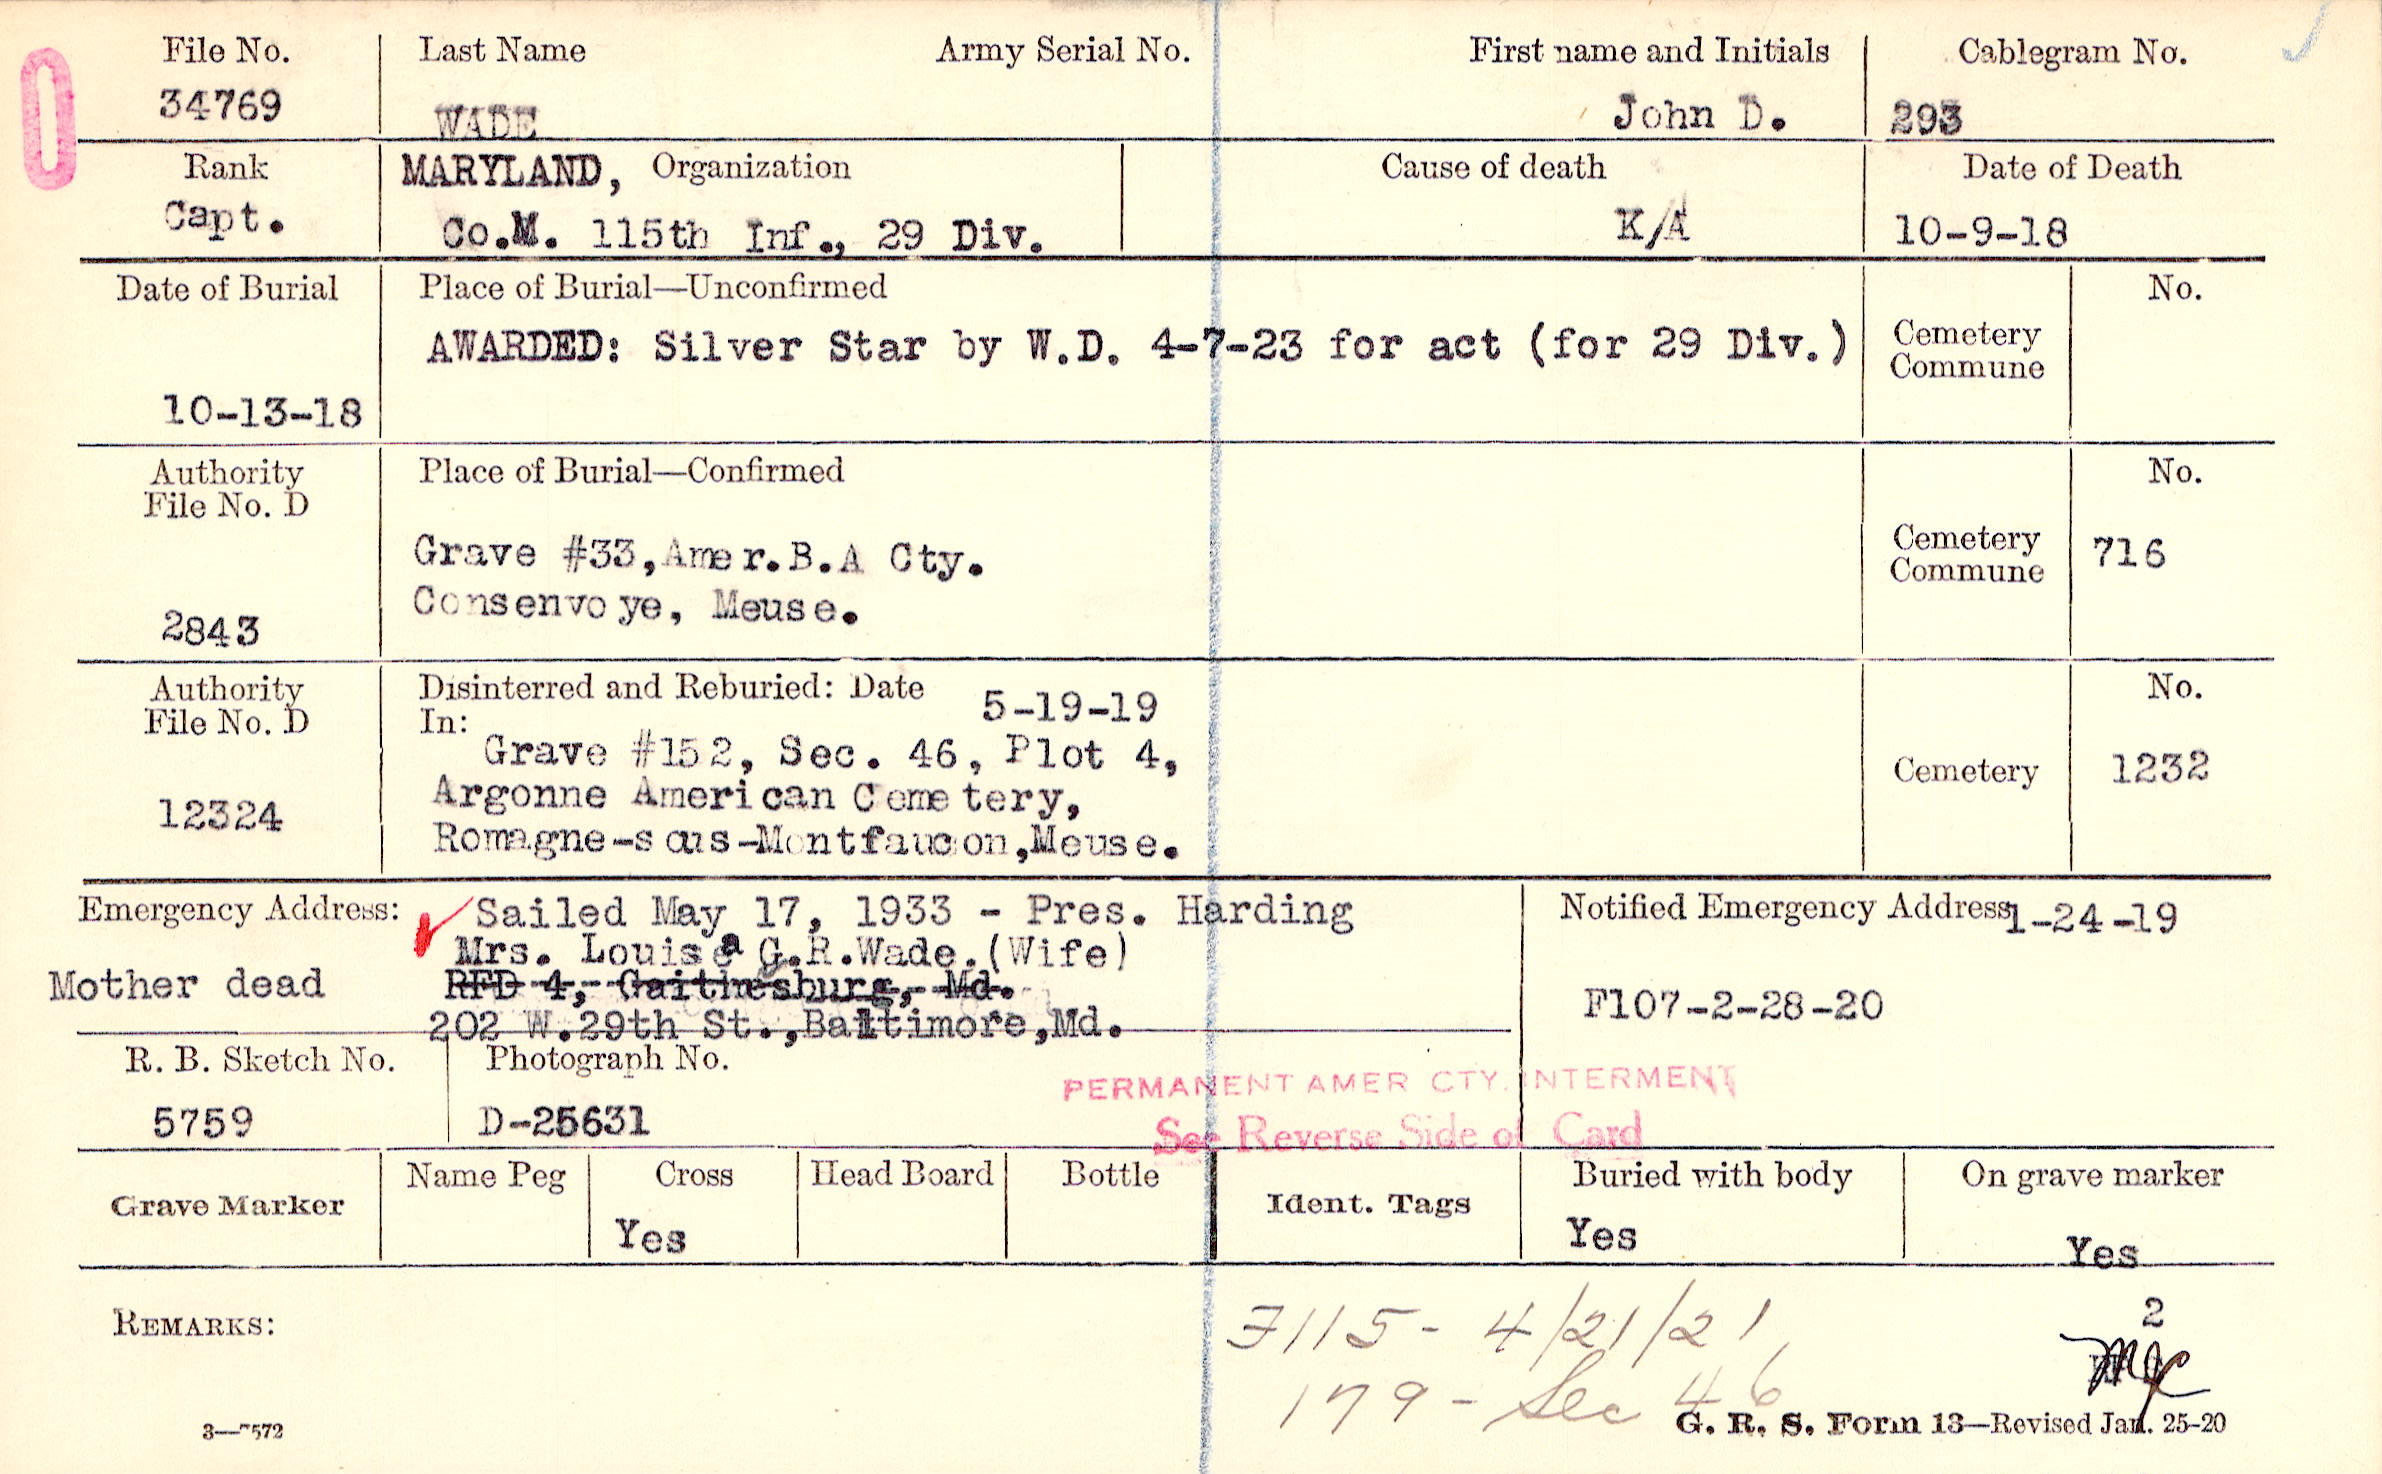 File No. Last Name Army Serial No. First name and Initials Cablegram No.
34769 WADE John D. 293
Rank MARYLAND, Organization Cause of death Date of Death
Capt. Co.M. 115th Inf., 29 Div. K/A 10-9-18
Date of Burial Place of Burial—Unconfirmed No.
AWARDED: Silver Star by W.D. 4-7-23 for act (for 29 Div.) Cemetery
Commune
10-13-18
Authority Place of Burial—Confirmed No.
File No. D
Grave #33,Amer.B.A Cty. Cemetery 716
Consenvoye, Meuse. Commune
2843
Authority Disinterred and Reburied: Date 5-19-19 No.
File No. D In:
Grave #152, Sec. 46, Plot 4, Cemetery 1232
12324 Argonne American Cemetery,
Romagne-sous-Montfaucon,Meuse.
Emergency Address: Sailed May 17, 1933 - Pres. Harding Notified Emergency Address 1-24-19
Mrs. Louisa G.R.Wade.(Wife)
Mother dead RFD 4, Gaithesburg, Md. F107-2-28-20
202 W.29th St.,Baltimore,Md.
R. B. Sketch No. Photograph No.
PERMANENT AMER CTY. INTERMENT
5759 D-25631 See Reverse Side of Card
Grave Marker Name Peg Cross Head Board Bottle Ident. Tags Buried with body On grave marker
Yes Yes Yes
REMARKS: 2
F115- 4/21/21
179 - Sec 46
3—7572 G. R. S. Form 13—Revised Jan. 25-20